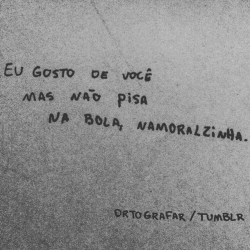 EU GOSTO DE VOCÊ
MAS NÃO PISA
NA BOLA, NAMORALZINHA.
ORTOGRAFAR/TUMBLR